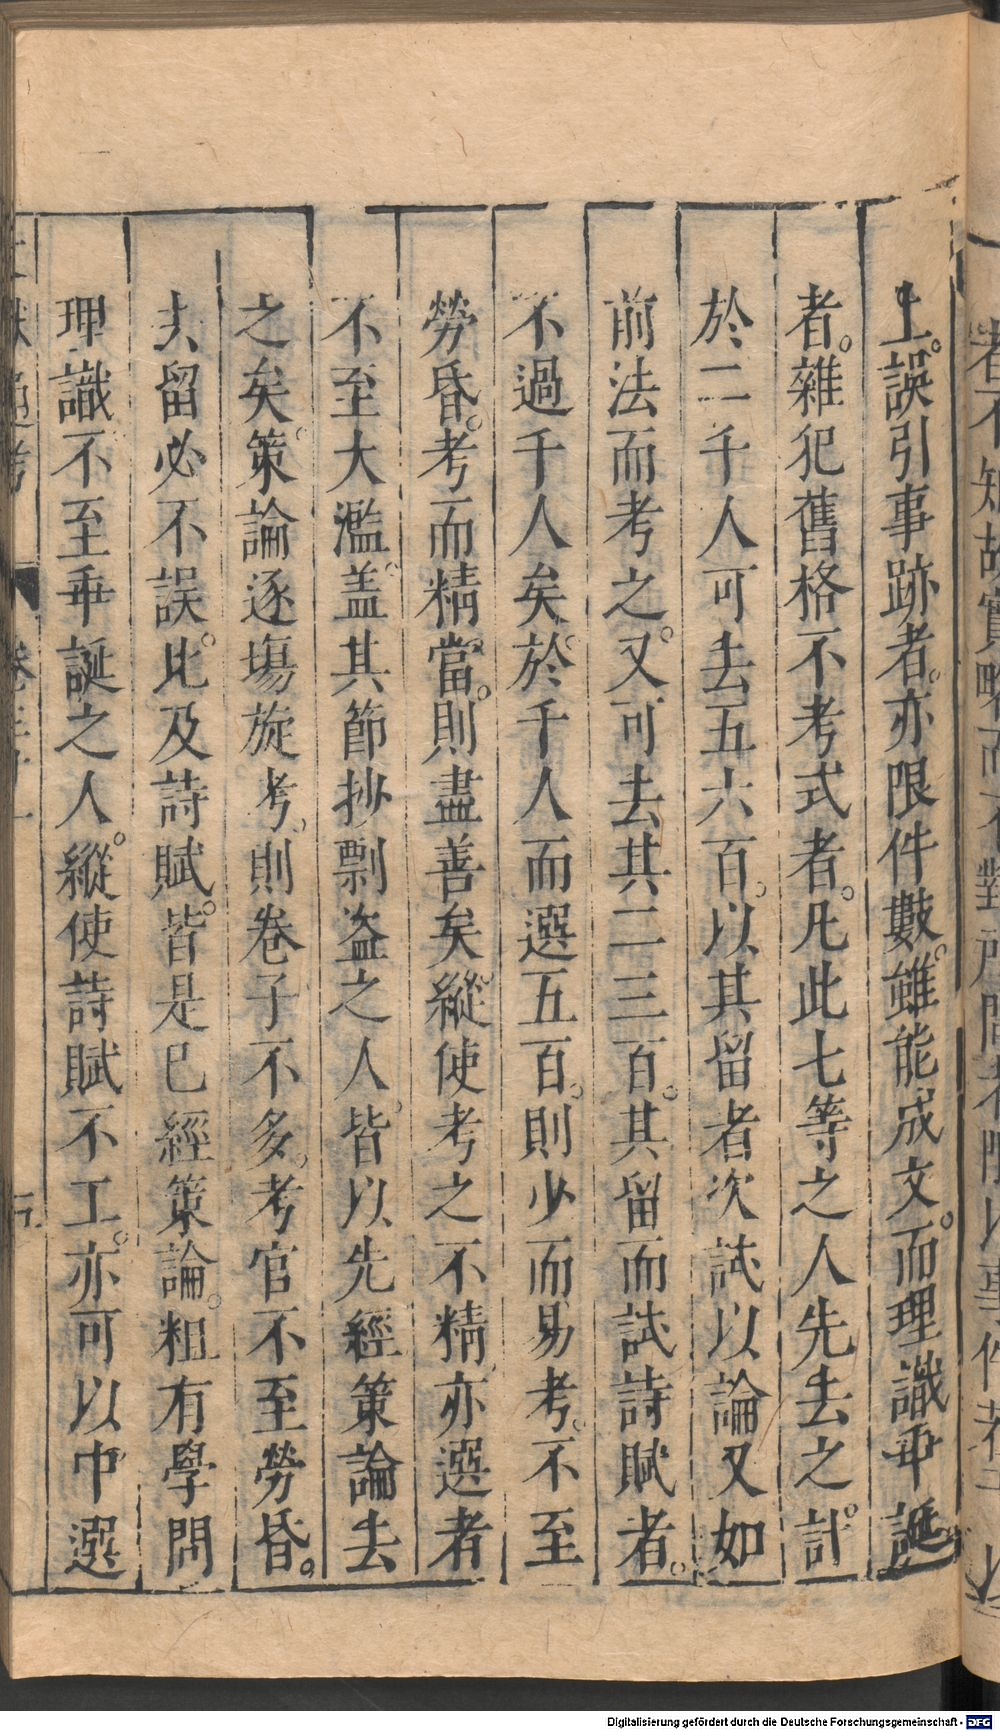 上。誤引事跡者。亦限件數。雖能成文。而理識乖誕
者。雜犯舊格不考式者。凡此七等之人先去之。計
於二千人可去五六百。以其留者次試以論又如
前法而考之。又可去其二三百。其留而試詩賦者。
不過千人矣。於千人而選五百。則少而易考。不至
勞昏。考而精當。則盡善矣。縱使考之不精亦選者
不至大濫。盖其節抄剽盗之人。皆以先經策論去
之矣。策論逐塲旋考。則卷子不多。考官不至勞昏。
去留必不誤。比及詩賦。皆是已經策論。粗有學問
理識不至乖誕之人。縱使詩賦不工。亦可以中選
Digitalisierung gefördert durch die Deutsche Forschungsgemeinschaft - DFG